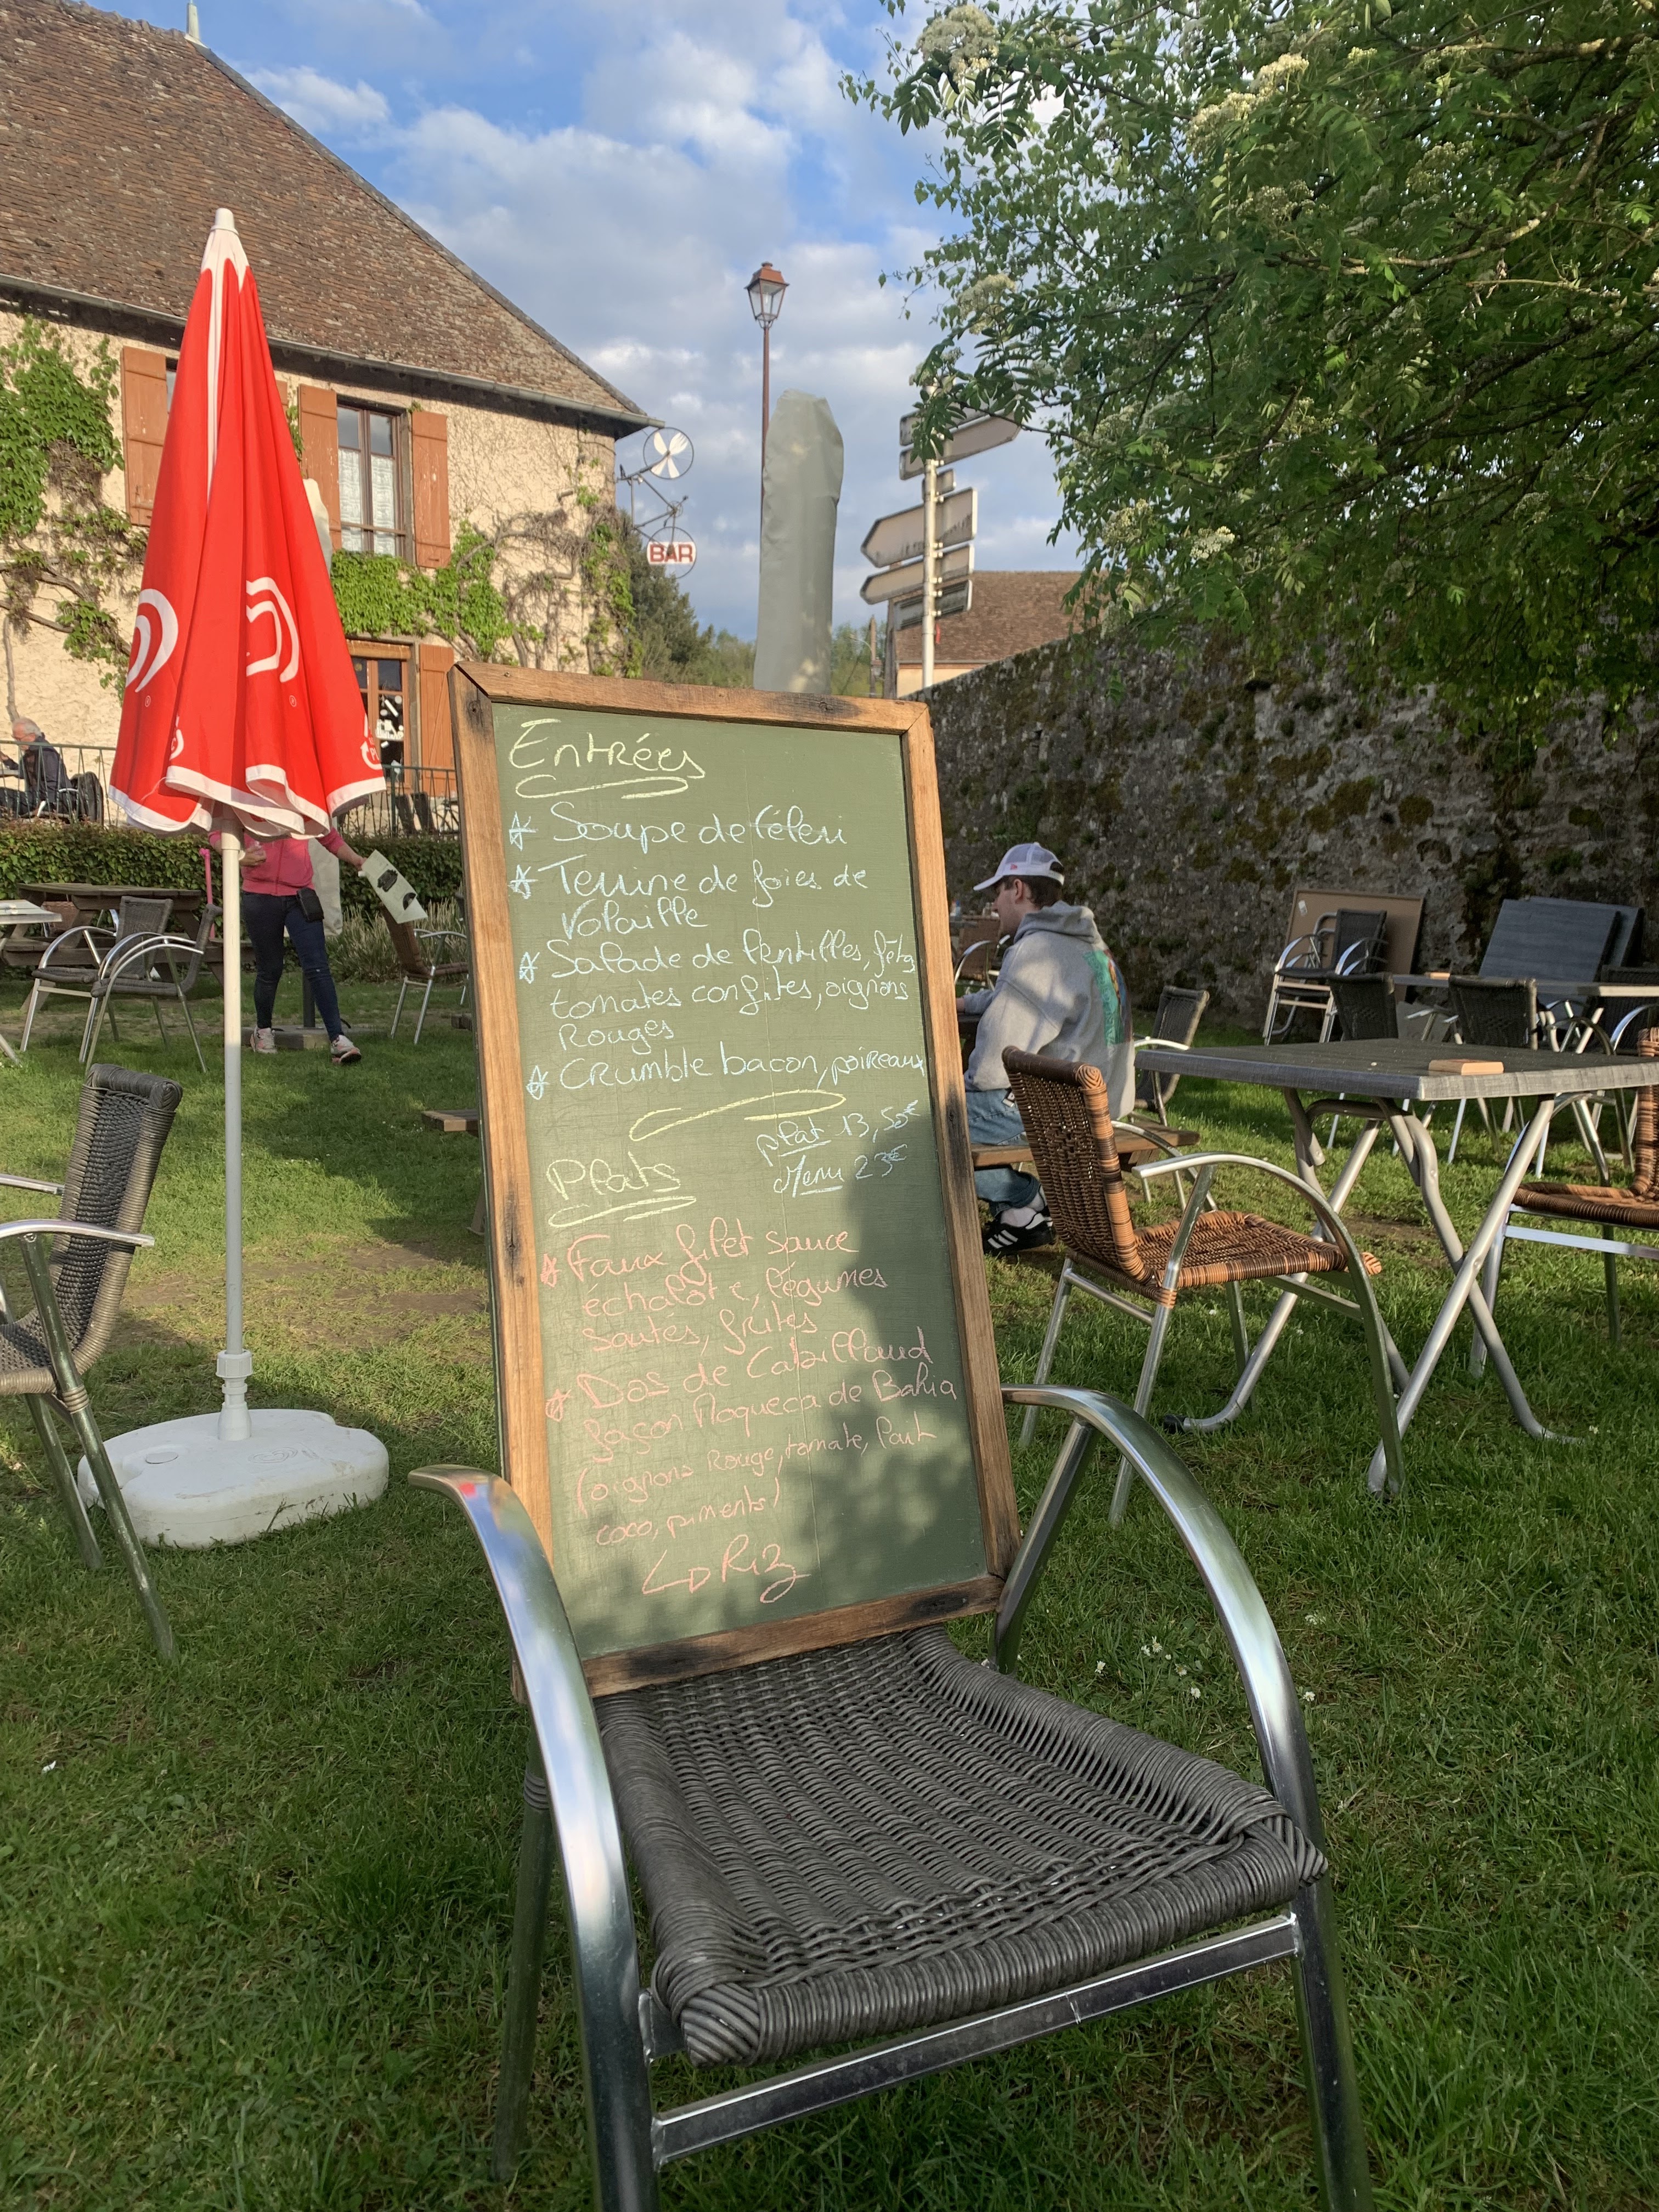 BAR
Entrées
Soupe de Céleri
Terrine de foies de
Volaille
Salade de lentilles, féta
tomates confites, oignons
Rouges
Crumble bacon, poireaux
plat 13,50€
Menu 23€
Plats
Faux filet sauce
échalote, légumes
Sautés, frites
Dos de Cabillaud
façon Moqueca de Bahia
(oignons Rouge, tomate, lait
coco, piments)
Riz